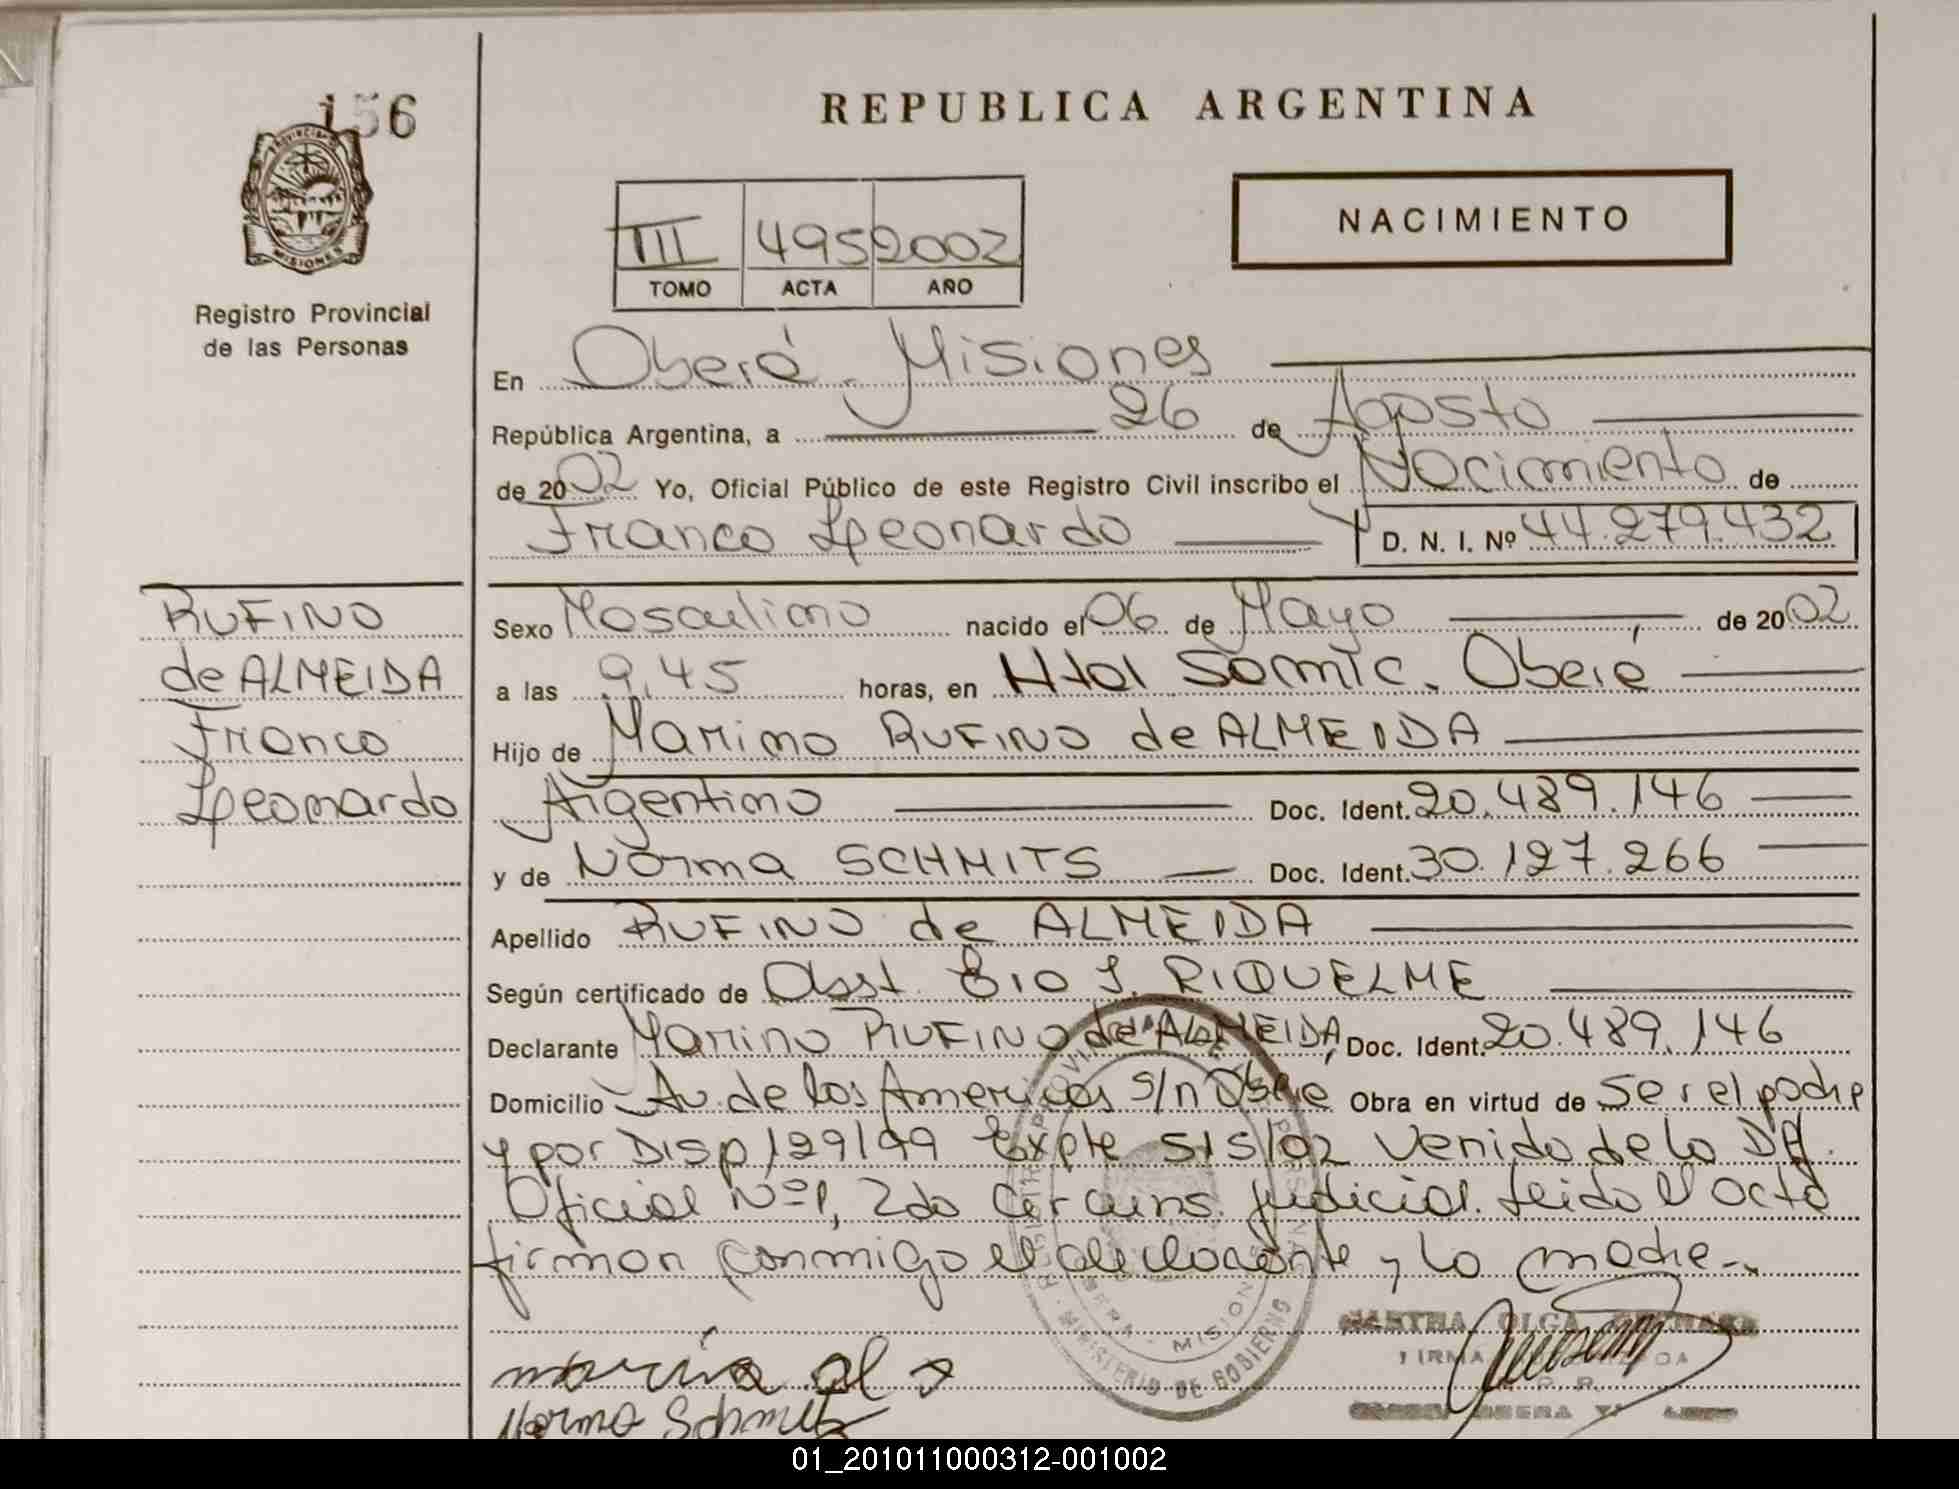 156
PROVINCIA
MISIONES
Registro Provincial
de las Personas
REPUBLICA ARGENTINA
III 495 2002
TOMO ACTA AÑO
NACIMIENTO
En Oberá - Misiones
República Argentina, a 26 de Agosto
de 2002 Yo, Oficial Público de este Registro Civil inscribo el Nacimiento de
Franco Leonardo D. N. I. Nº 44.279.432
RUFINO
de ALMEIDA
Franco
Leonardo
Sexo Masculino nacido el 06 de Mayo de 2002
a las 9,45 horas, en Htal Samic. Oberá
Hijo de Marino RUFINO de ALMEIDA
Argentino Doc. Ident. 20.489.146
y de Norma SCHMITS Doc. Ident. 30.127.266
Apellido RUFINO de ALMEIDA
Según certificado de Obst. J. RIQUELME
Declarante Marino RUFINO de ALMEIDA, Doc. Ident. 20.489.146
Domicilio Av. de los Americas s/n Oberá Obra en virtud de ser el padre
y por Disp 129/99 Expte 515/02 Venido de la
Oficial Nº1, 2da Circuns. Judicial. Leido el acta
firman conmigo el declarante y la madre.-
MINISTERIO DE GOBIERNO
OBERA - MISIONES
MARTHA OLGA
FIRMA
Norma Schmits
01_201011000312-001002